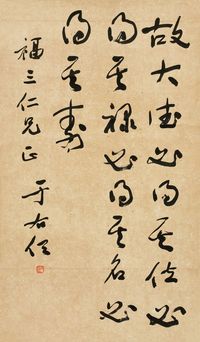 故大德必得其位必
得其祿必得其名必
得其壽
福三仁兄正 于右任